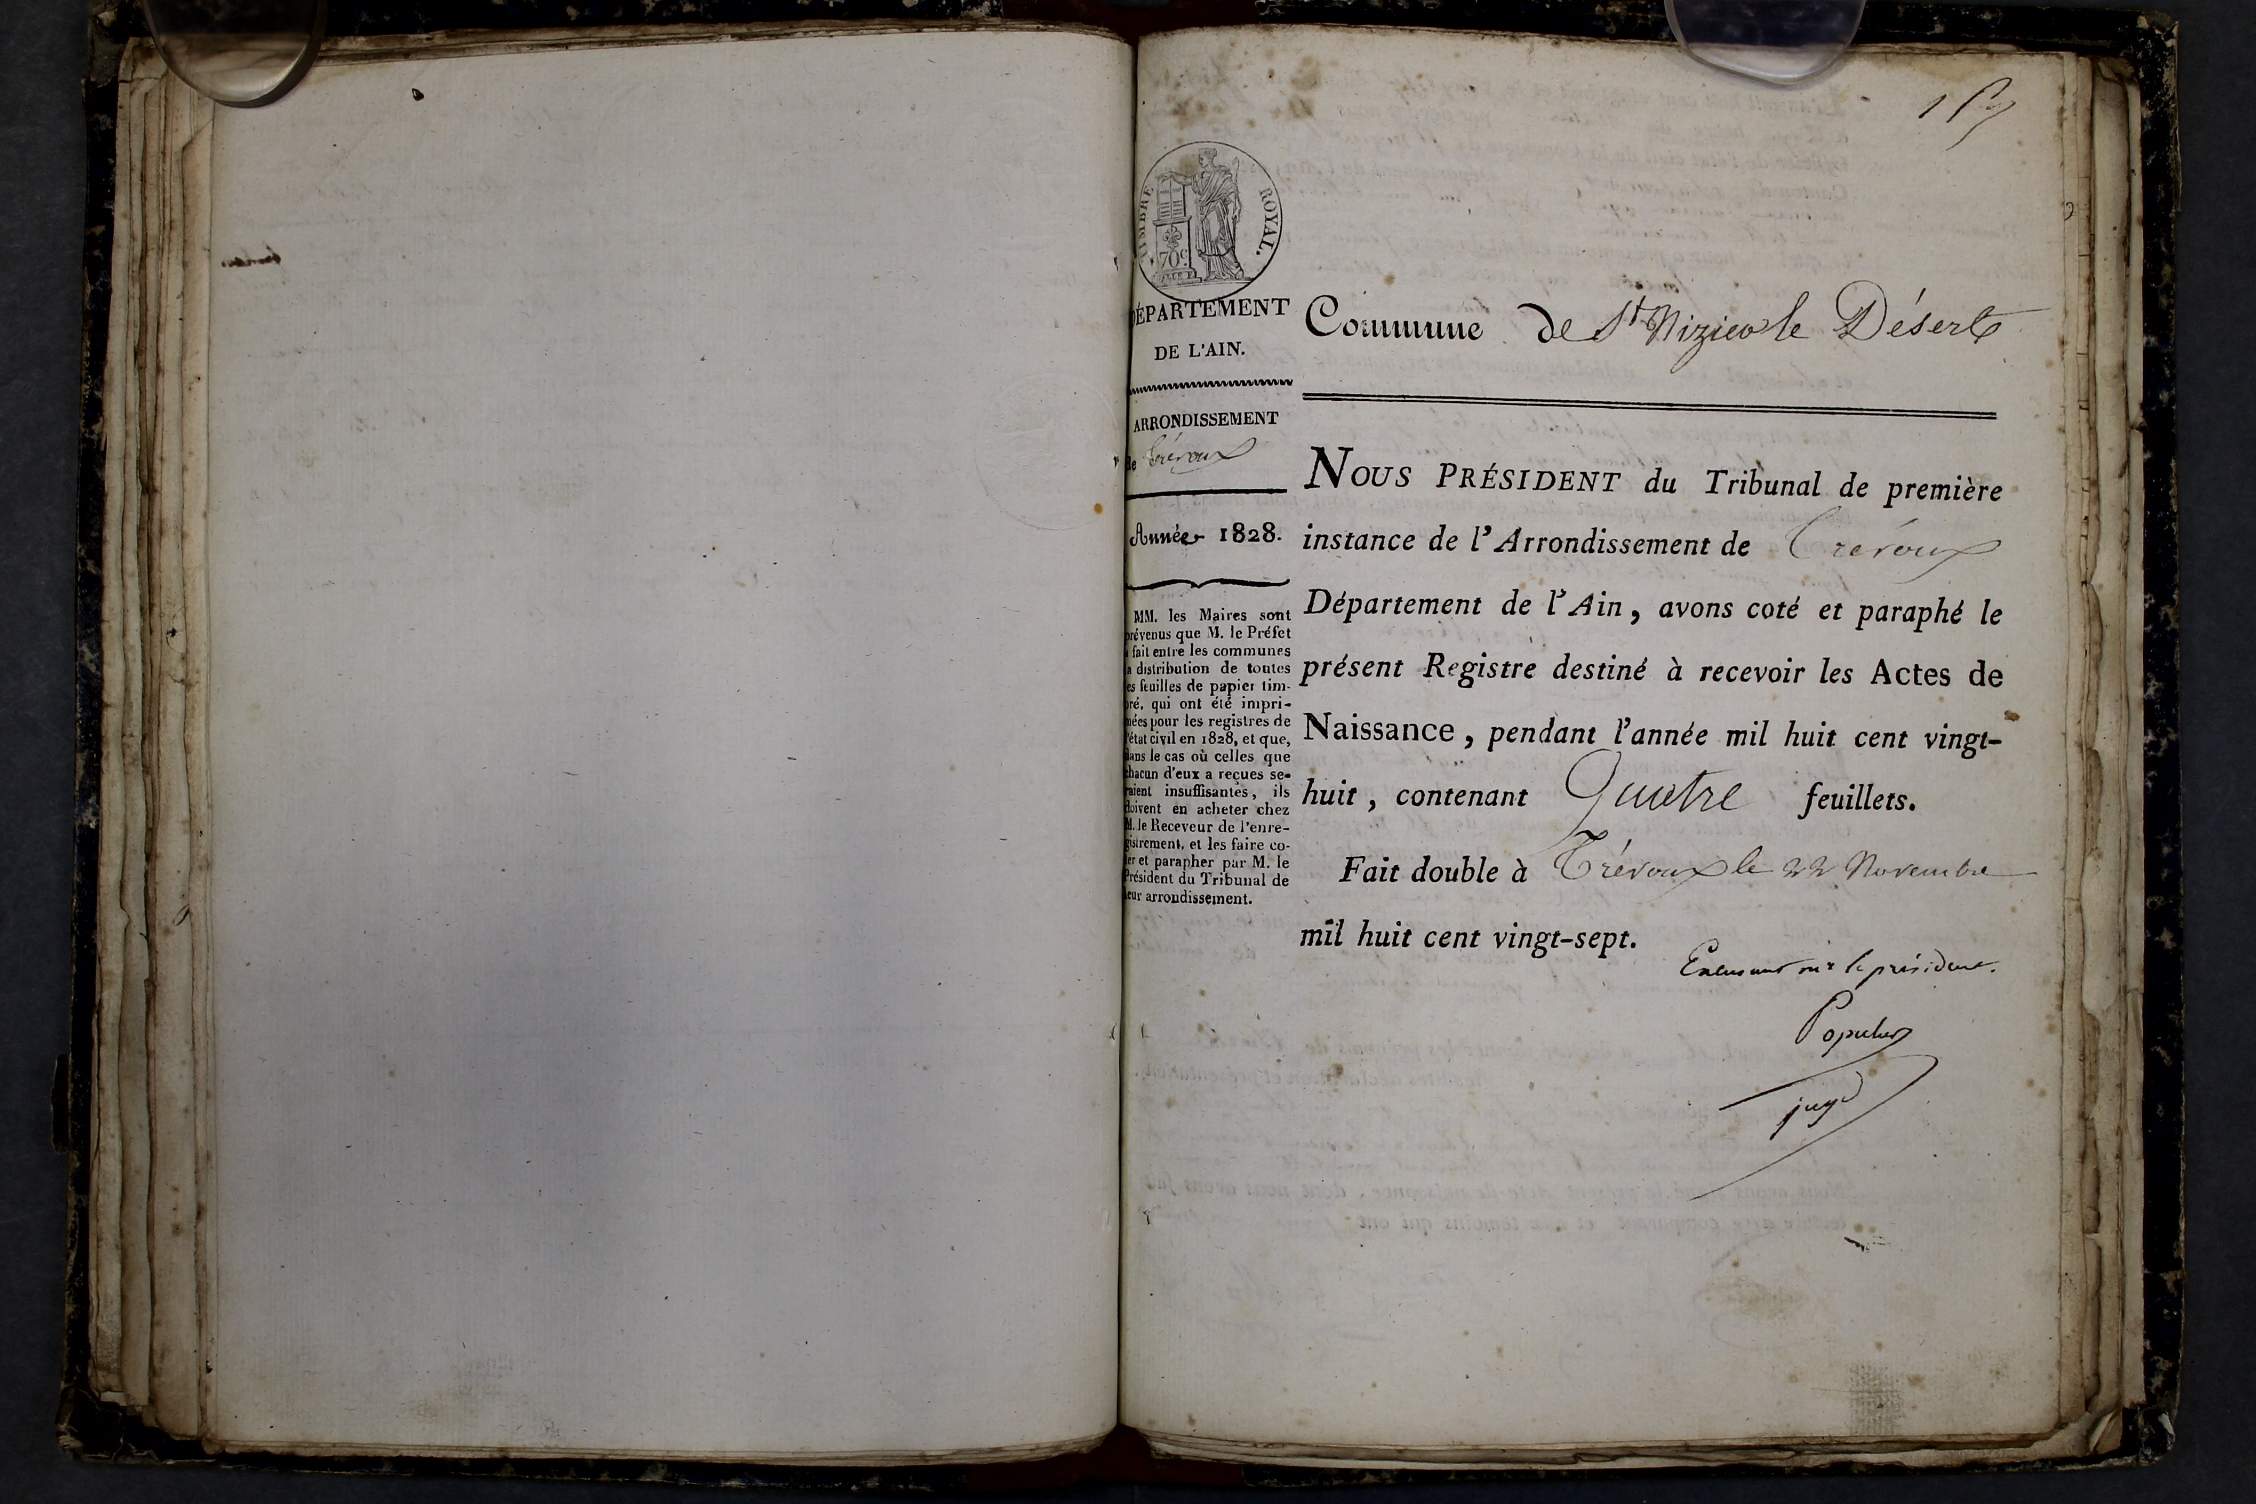 1
TIMBRE ROYAL.
70 c
DÉPARTEMENT
DE L'AIN.
ARRONDISSEMENT
de Trévoux
Année 1828.
MM. les Maires sont
prévenus que M. le Préfet
a fait entre les communes
la distribution de toutes
les feuilles de papier tim-
bré, qui ont été impri-
mées pour les registres de
l'état civil en 1828, et que,
dans le cas où celles que
chacun d'eux a reçues se-
raient insuffisantes, ils
doivent en acheter chez
M. le Receveur de l'enre-
gistrement, et les faire co-
ter et parapher par M. le
Président du Tribunal de
leur arrondissement.
Commune de St Nizier le Désert
NOUS PRÉSIDENT du Tribunal de première
instance de l'Arrondissement de Trévoux
Département de l'Ain, avons coté et paraphé le
présent Registre destiné à recevoir les Actes de
Naissance, pendant l'année mil huit cent vingt-
huit, contenant Quatre feuillets.
Fait double à Trévoux le 22 Novembre
mil huit cent vingt-sept.
le président.
juge